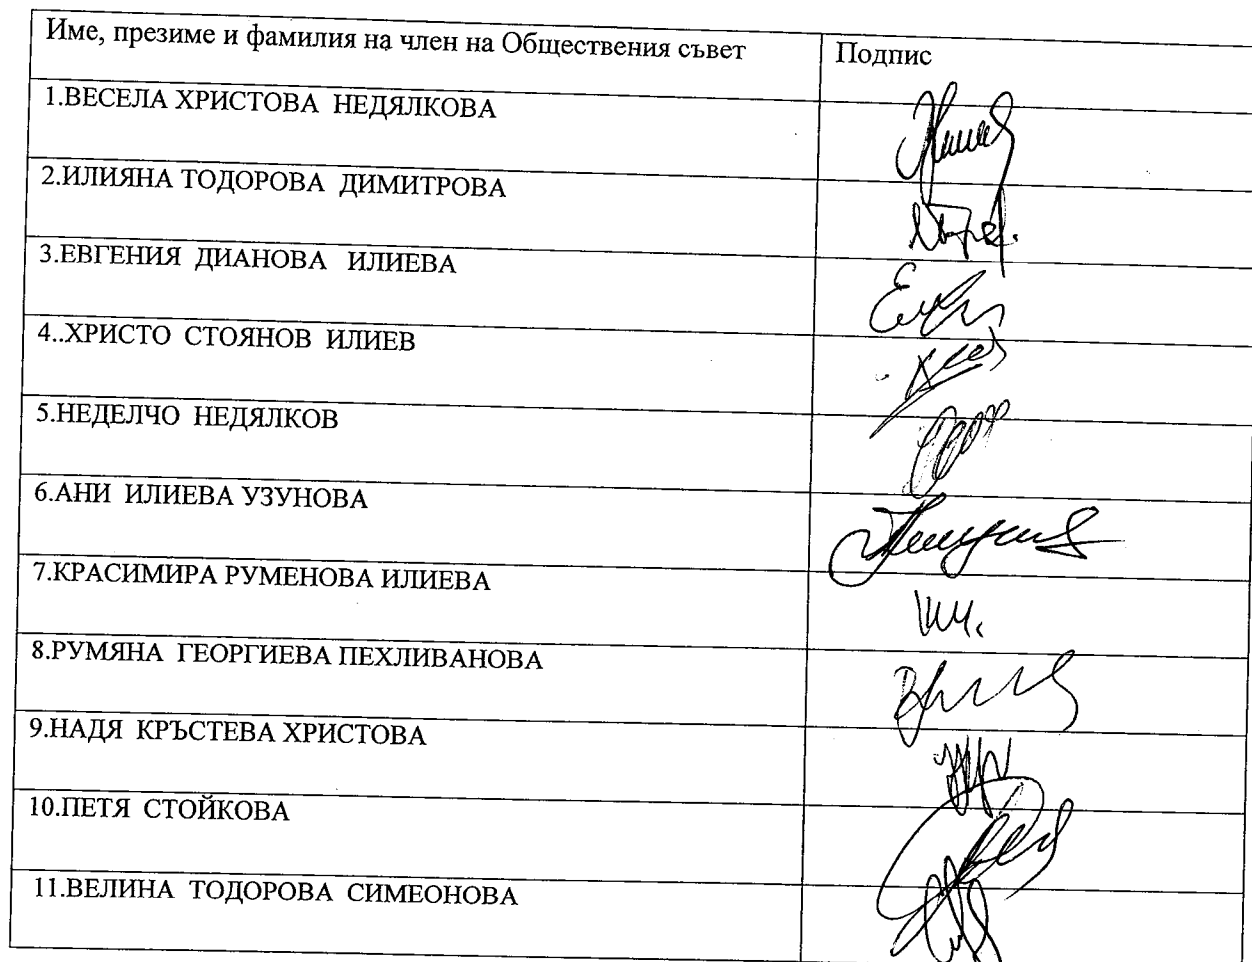 Име, презиме и фамилия на член на Обществения съвет Подпис
1.ВЕСЕЛА ХРИСТОВА НЕДЯЛКОВА
2.ИЛИЯНА ТОДОРОВА ДИМИТРОВА
3.ЕВГЕНИЯ ДИАНОВА ИЛИЕВА
4..ХРИСТО СТОЯНОВ ИЛИЕВ
5.НЕДЕЛЧО НЕДЯЛКОВ
6.АНИ ИЛИЕВА УЗУНОВА
7.КРАСИМИРА РУМЕНОВА ИЛИЕВА
8.РУМЯНА ГЕОРГИЕВА ПЕХЛИВАНОВА
9.НАДЯ КРЪСТЕВА ХРИСТОВА
10.ПЕТЯ СТОЙКОВА
11.ВЕЛИНА ТОДОРОВА СИМЕОНОВА